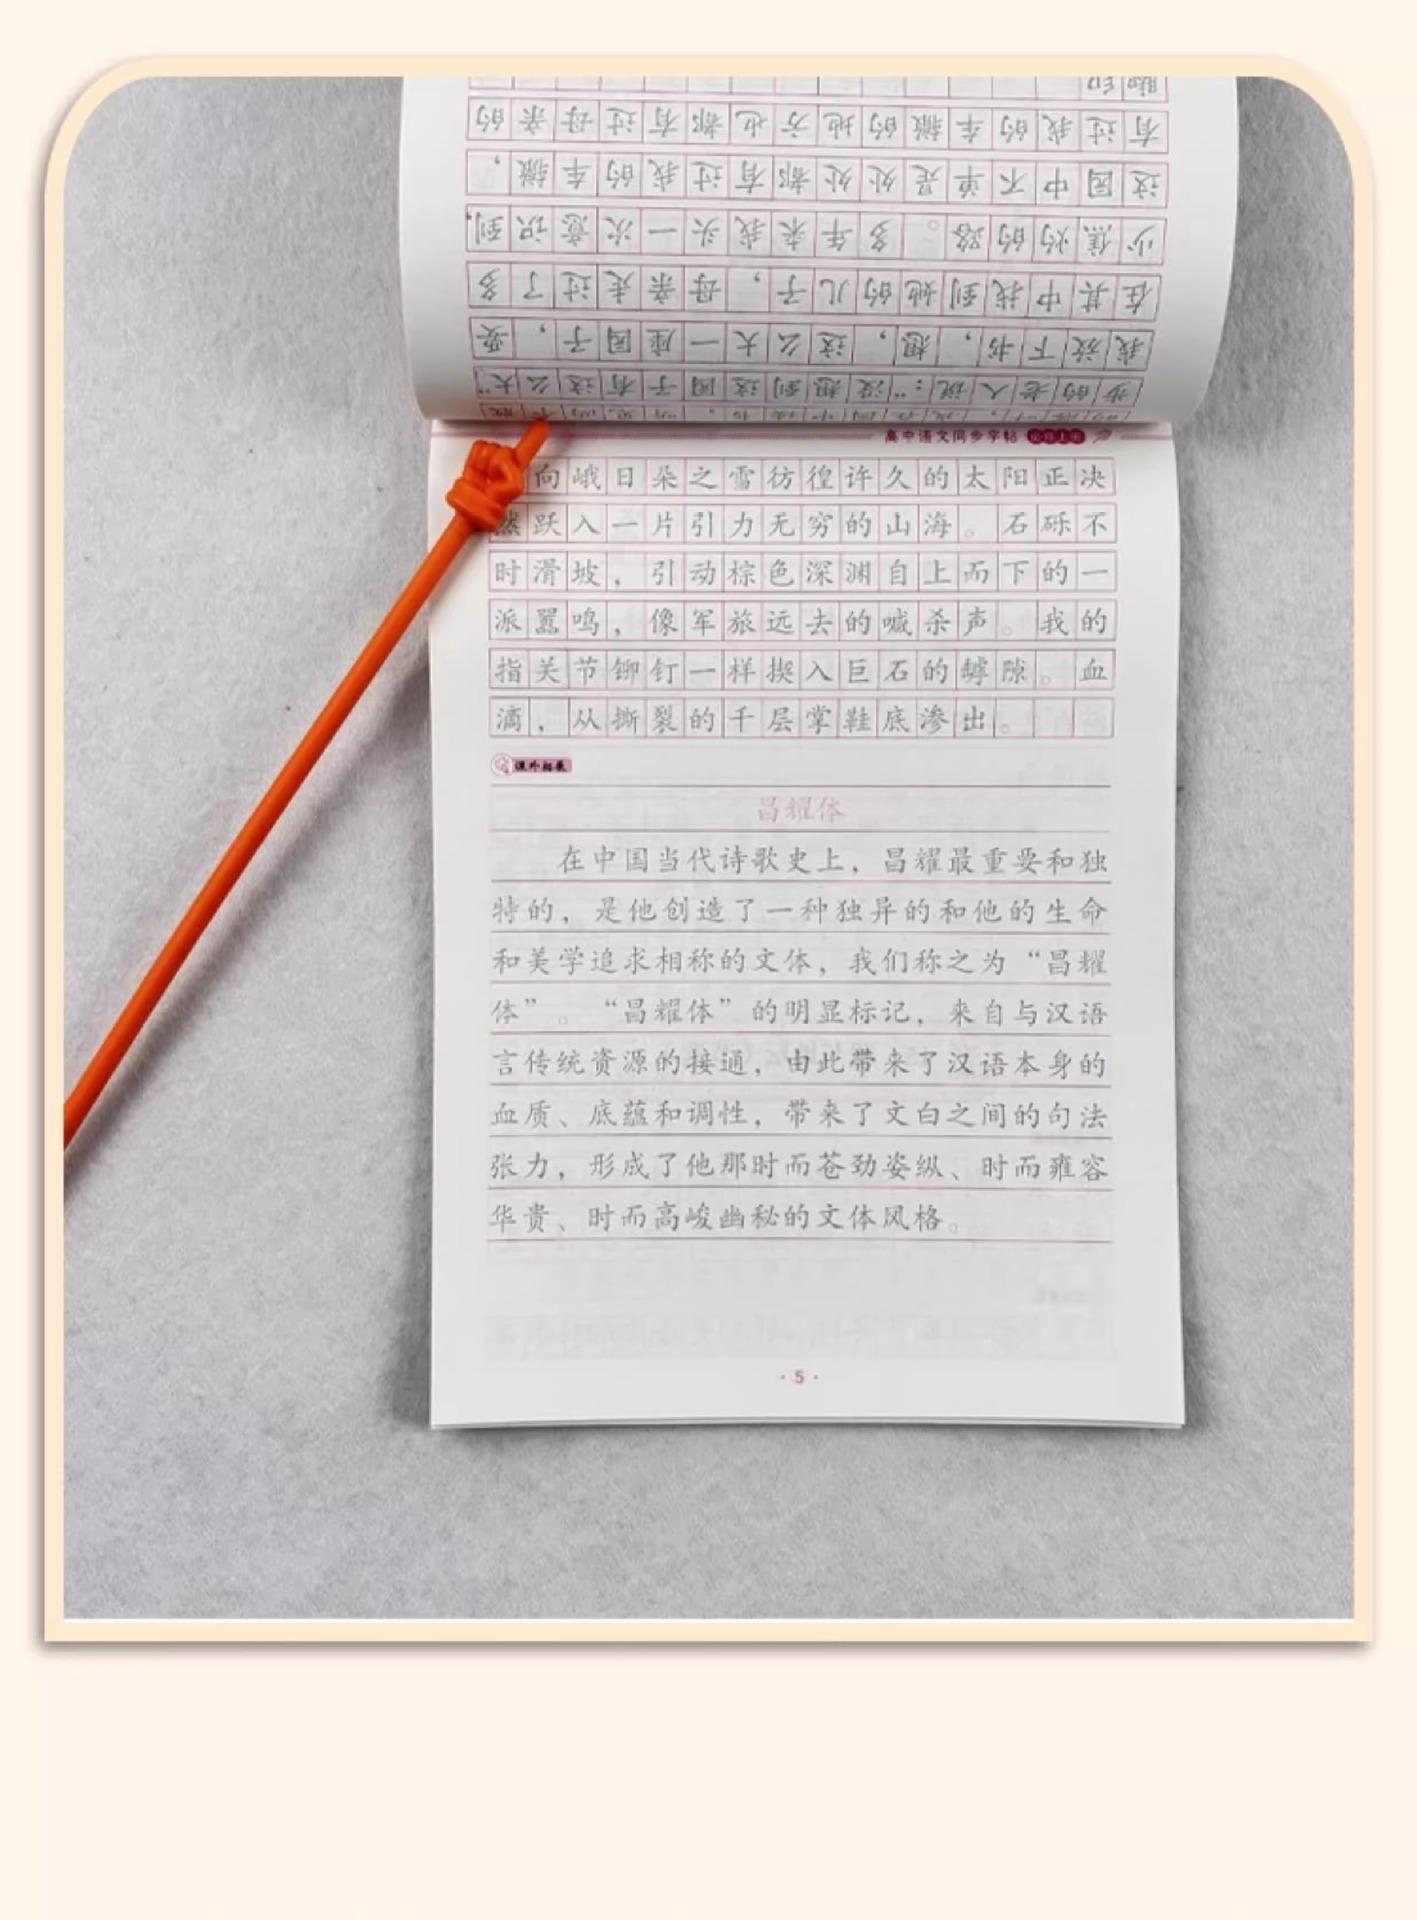 步的老人说：“没想到这园子有这么大”
我放下书，想，这么大一座园子，要
在其中找到她的儿子，母亲走过了多
少焦灼的路。多年来我头一次意识到，
这园中不单是处处都有过我的车辙，
有过我的车辙的地方也都有过母亲的
脚印
高中语文同步字帖 必修上册
向峨日朵之雪彷徨许久的太阳正决
然跃入一片引力无穷的山海。石砾不
时滑坡，引动棕色深渊自上而下的一
派嚣鸣，像军旅远去的喊杀声。我的
指关节铆钉一样揳入巨石的罅隙。血
滴，从撕裂的千层掌鞋底渗出。
课外拓展
昌耀体
在中国当代诗歌史上，昌耀最重要和独
特的，是他创造了一种独异的和他的生命
和美学追求相称的文体，我们称之为“昌耀
体”。“昌耀体”的明显标记，来自与汉语
言传统资源的接通，由此带来了汉语本身的
血质、底蕴和调性，带来了文白之间的句法
张力，形成了他那时而苍劲姿纵、时而雍容
华贵、时而高峻幽秘的文体风格。
·5·